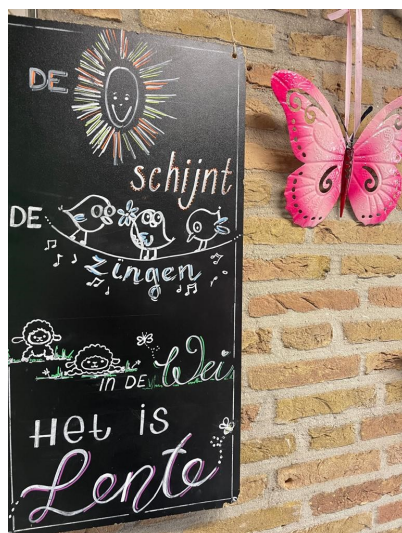 DE
schijnt
DE
zingen
in DE Wei
Het is
Lente